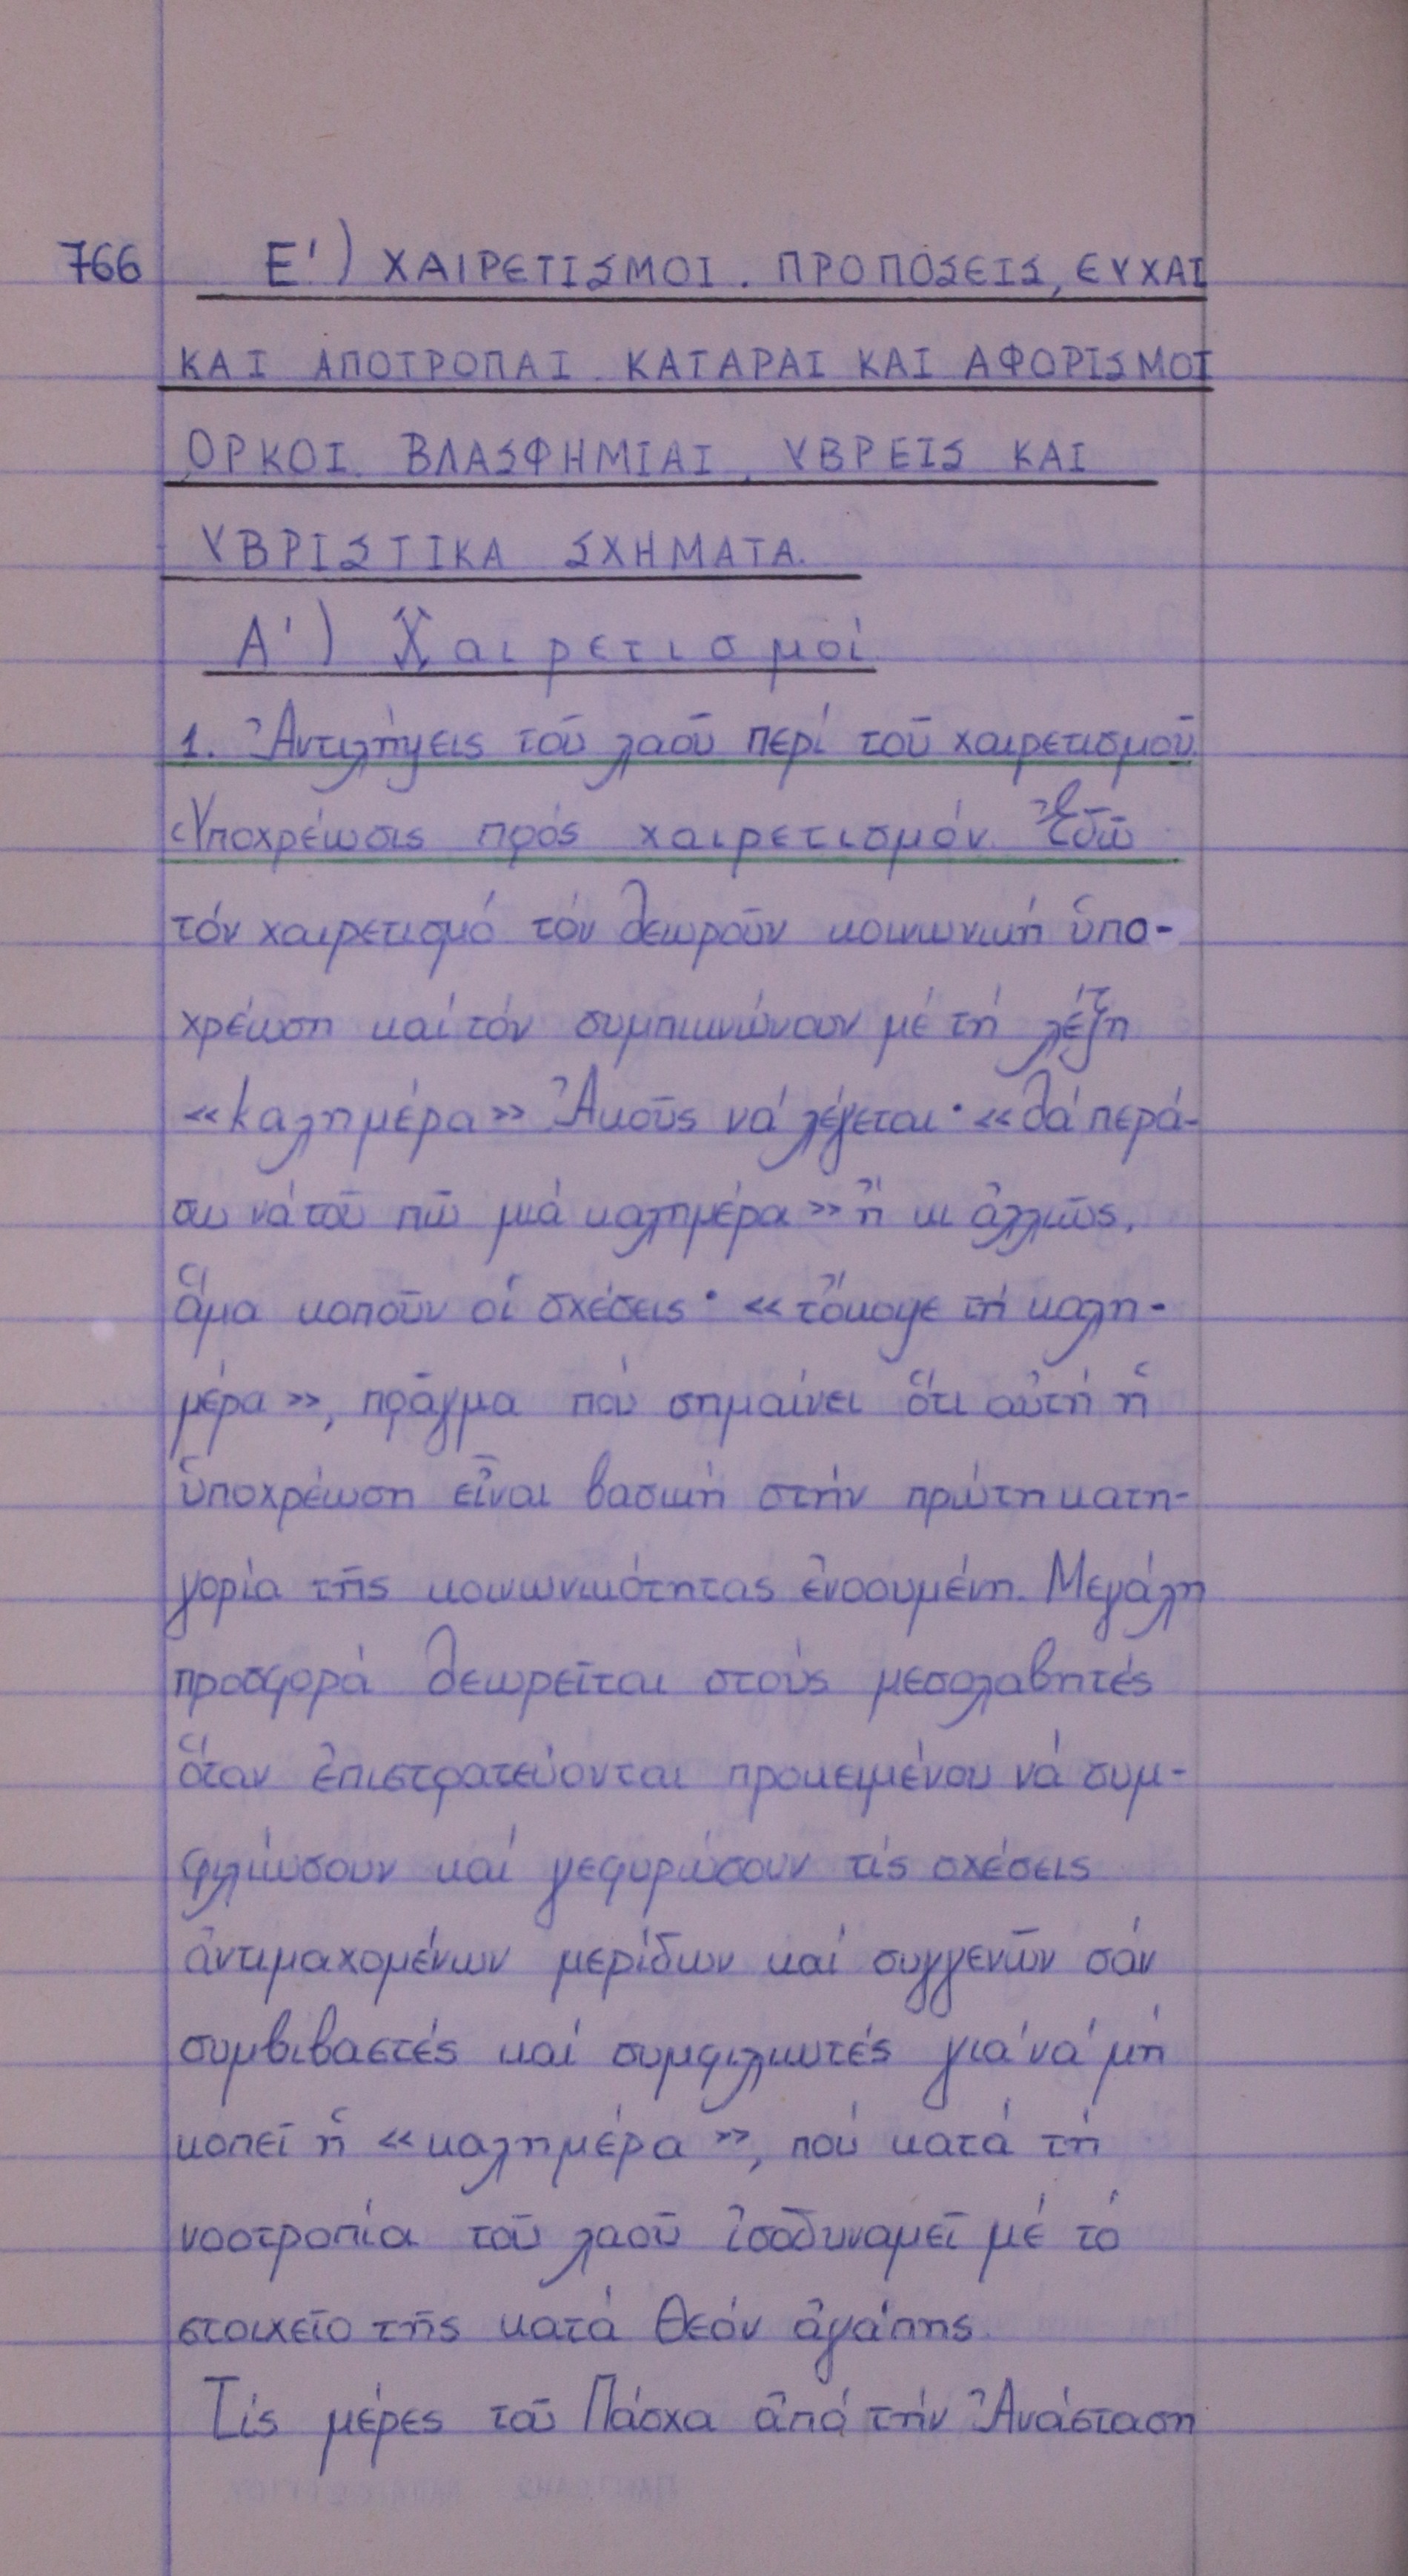 766 Ε') ΧΑΙΡΕΤΙΣΜΟΙ. ΠΡΟΠΟΣΕΙΣ, ΕΥΧΑΙ
ΚΑΙ ΑΠΟΤΡΟΠΑΙ. ΚΑΤΑΡΑΙ ΚΑΙ ΑΦΟΡΙΣΜΟΙ
ΟΡΚΟΙ. ΒΛΑΣΦΗΜΙΑΙ, ΥΒΡΕΙΣ ΚΑΙ
ΥΒΡΙΣΤΙΚΑ ΣΧΗΜΑΤΑ.
Α') Χαιρετισμοί
1. Ἀντιλήψεις τοῦ λαοῦ περί τοῦ χαιρετισμοῦ.
Ὑποχρέωσις πρός χαιρετισμόν. Ἐδῶ
τόν χαιρετισμό τόν θεωροῦν κοινωνική ὑπο-
χρέωση καί τόν συμπυκνώνουν μέ τή λέξη
«καλημέρα» Ἀκοῦς νά λέγεται· «θά περά-
σω νά τοῦ πῶ μιά καλημέρα» ἤ κι ἀλλιῶς,
ἅμα κοποῦν οἱ σχέσεις· «τὄκοψε τή καλη-
μέρα», πρᾶγμα πού σημαίνει ὅτι αὐτή ἡ
ὑποχρέωση εἶναι βασική στήν πρώτη κατη-
γορία τῆς κοινωνικότητας ἐνσουμένη. Μεγάλη
προσφορά θεωρεῖται στούς μεσολαβητές
ὅταν ἐπιστρατεύονται προκειμένου νά συμ-
φιλιώσουν καί γεφυρώσουν τίς σχέσεις
ἀντιμαχομένων μερίδων καί συγγενῶν σάν
συμβιβαστές καί συμφιλιωτές γιά νά μή
κοπεῖ ἡ «καλημέρα», πού κατά τή
νοοτροπία τοῦ λαοῦ ἰσοδυναμεῖ μέ τό
στοιχεῖο τῆς κατά Θεόν ἀγάπης.
Τίς μέρες τοῦ Πάσχα ἀπό τήν Ἀνάσταση